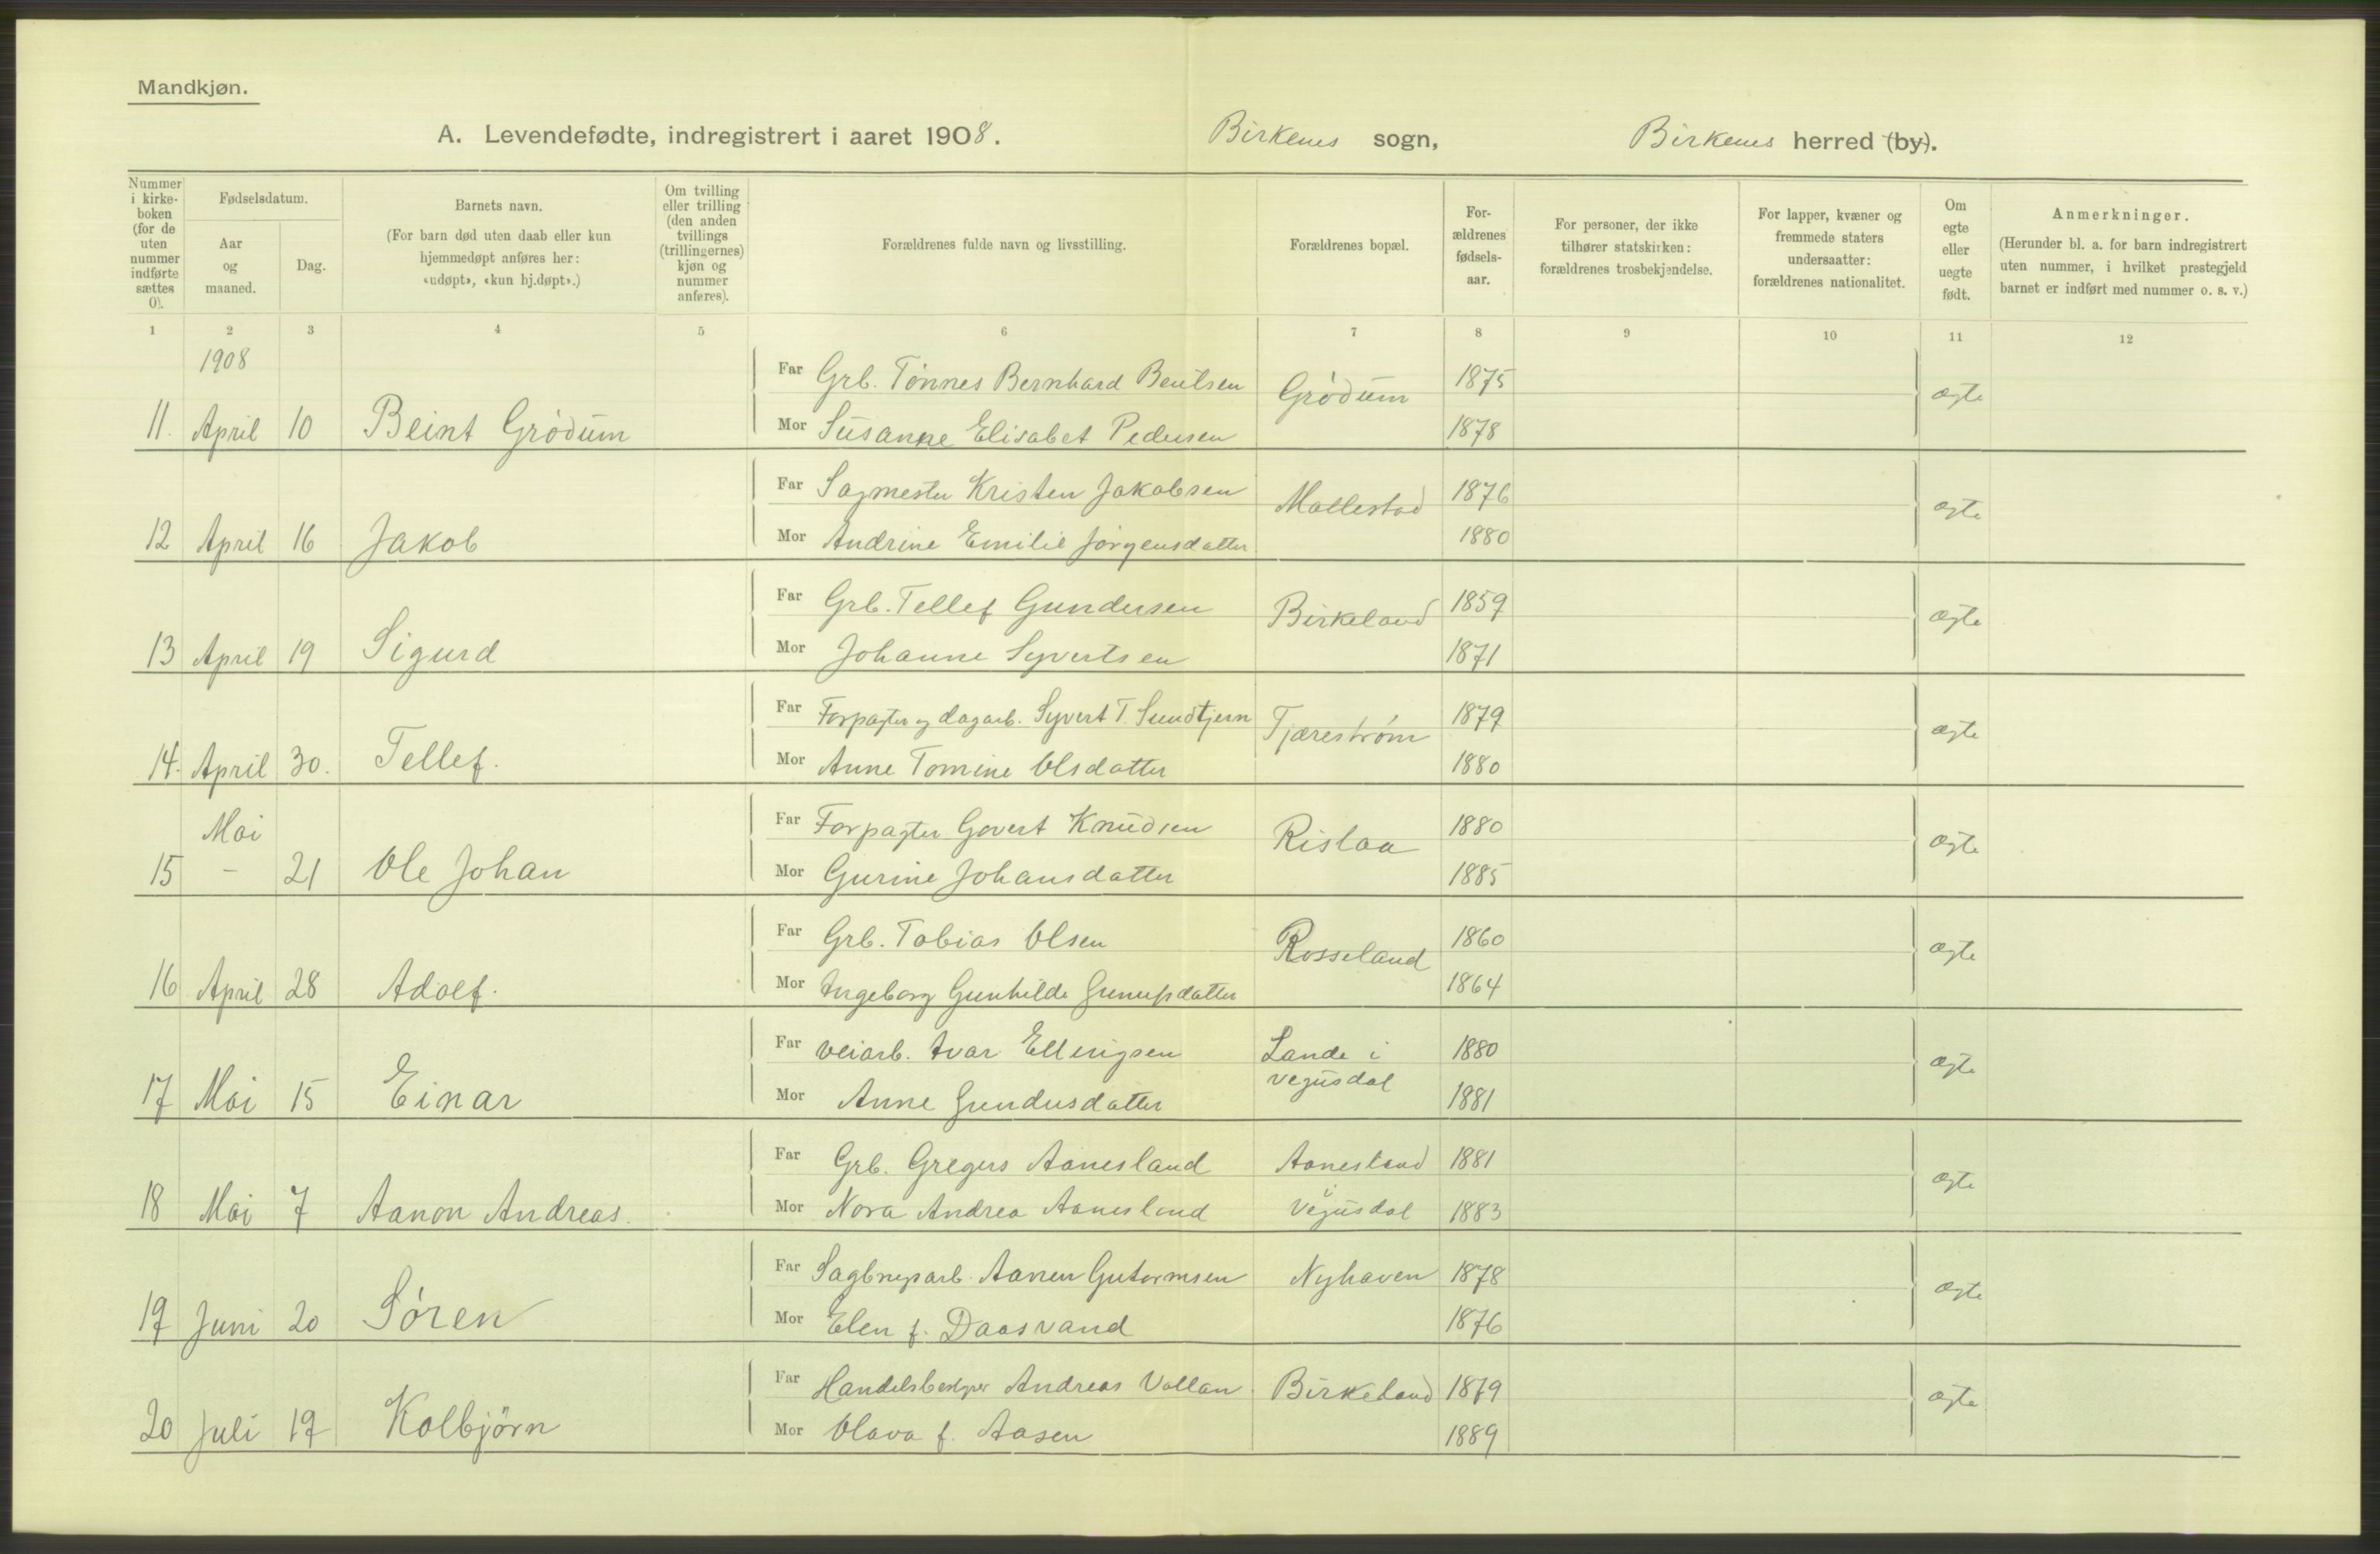 Mandkjøn.
A. Levendefødte, indregistrert i aaret 1908. Birkenes sogn, Birkenes herred (by).
Nummer i kirke-boken (for de uten nummer indførte sættes 0).
Fødselsdatum.
Aar og maaned.
Dag.
Barnets navn.
(For barn død uten daab eller kun hjemmedøpt anføres her: «udøpt», «kun hj.døpt».)
Om tvilling eller trilling (den anden tvillings (trillingernes) kjøn og nummer anføres).
Forældrenes fulde navn og livsstilling.
Forældrenes bopæl.
For-ældrenes fødsels-aar.
For personer, der ikke tilhører statskirken: forældrenes trosbekjendelse.
For lapper, kvæner og fremmede staters undersaatter: forældrenes nationalitet.
Om egte eller uegte født.
Anmerkninger.
(Herunder bl. a. for barn indregistrert uten nummer, i hvilket prestegjeld barnet er indført med nummer o. s. v.)
1 2 3 4 5 6 7 8 9 10 11 12
1908
Far Grb. Tønnes Bernhard Bentsen Grødum 1875 ægte
11. April 10 Beint Grødum Mor Susanne Elisabet Pedersen 1878
Far Sagmester Kristen Jakobsen Mollestad 1876 ægte
12 April 16 Jakob Mor Andrine Emilie Jørgensdatter 1880
Far Grb. Tellef Gundersen Birkeland 1859 ægte
13 April 19 Sigurd Mor Johanne Syvertsen 1871
Far Forpagter og dagarb. Syvert T. Sundtjern Tjærestrøm 1879 ægte
14. April 30. Tellef. Mor Anne Tomine Olsdatter 1880
Mai Far Forpagter Govert Knudsen Rislaa 1880 ægte
15 - 21 Ole Johan Mor Gurine Johansdatter 1885
Far Grb. Tobias Olsen Rosseland 1860 ægte
16 April 28 Adolf. Mor Ingeborg Gunhilde 1864
Far Veiarb. Ivar Ellingsen Lande i Vegusdal 1880 ægte
17 Mai 15 Einar Mor Anne Gundersdatter 1881
Far Grb. Gregers Aanesland Aanesland i Vegusdal 1881 ægte
18 Mai 7 Aanon Andreas. Mor Nora Andrea Aanesland 1883
Far Sagbrugsarb. Aanen Gutormsen Nyhaven 1878 ægte
19 Juni 20 Søren Mor Elen f. Daasvand 1876
Far Handelsbestyrer Andreas Vollan Birkeland 1879 ægte
20 Juli 19 Kolbjörn Mor Olava f. Aasen 1889